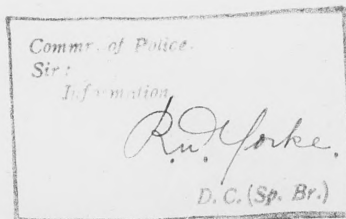 Commr. of Police.
Sir:
Information
R.W. Yorke.
D. C. (Sp. Br.)